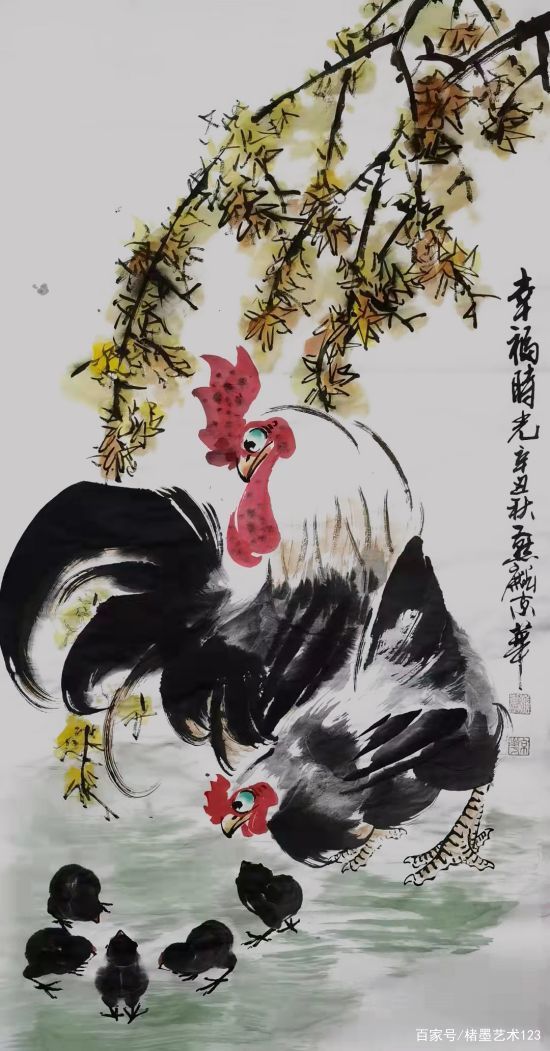 幸福時光辛丑秋
京華
百家号/楮墨艺术123